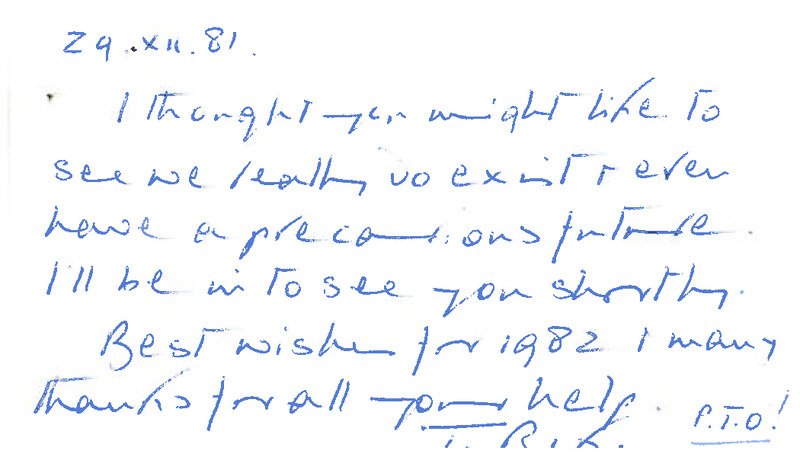 29.XII.81.
I thought you might like to
see we really do exist + even
have a precarious future.
I'll be in to see you shortly.
Best wishes for 1982 + many
thanks for all your help.
P.T.O!